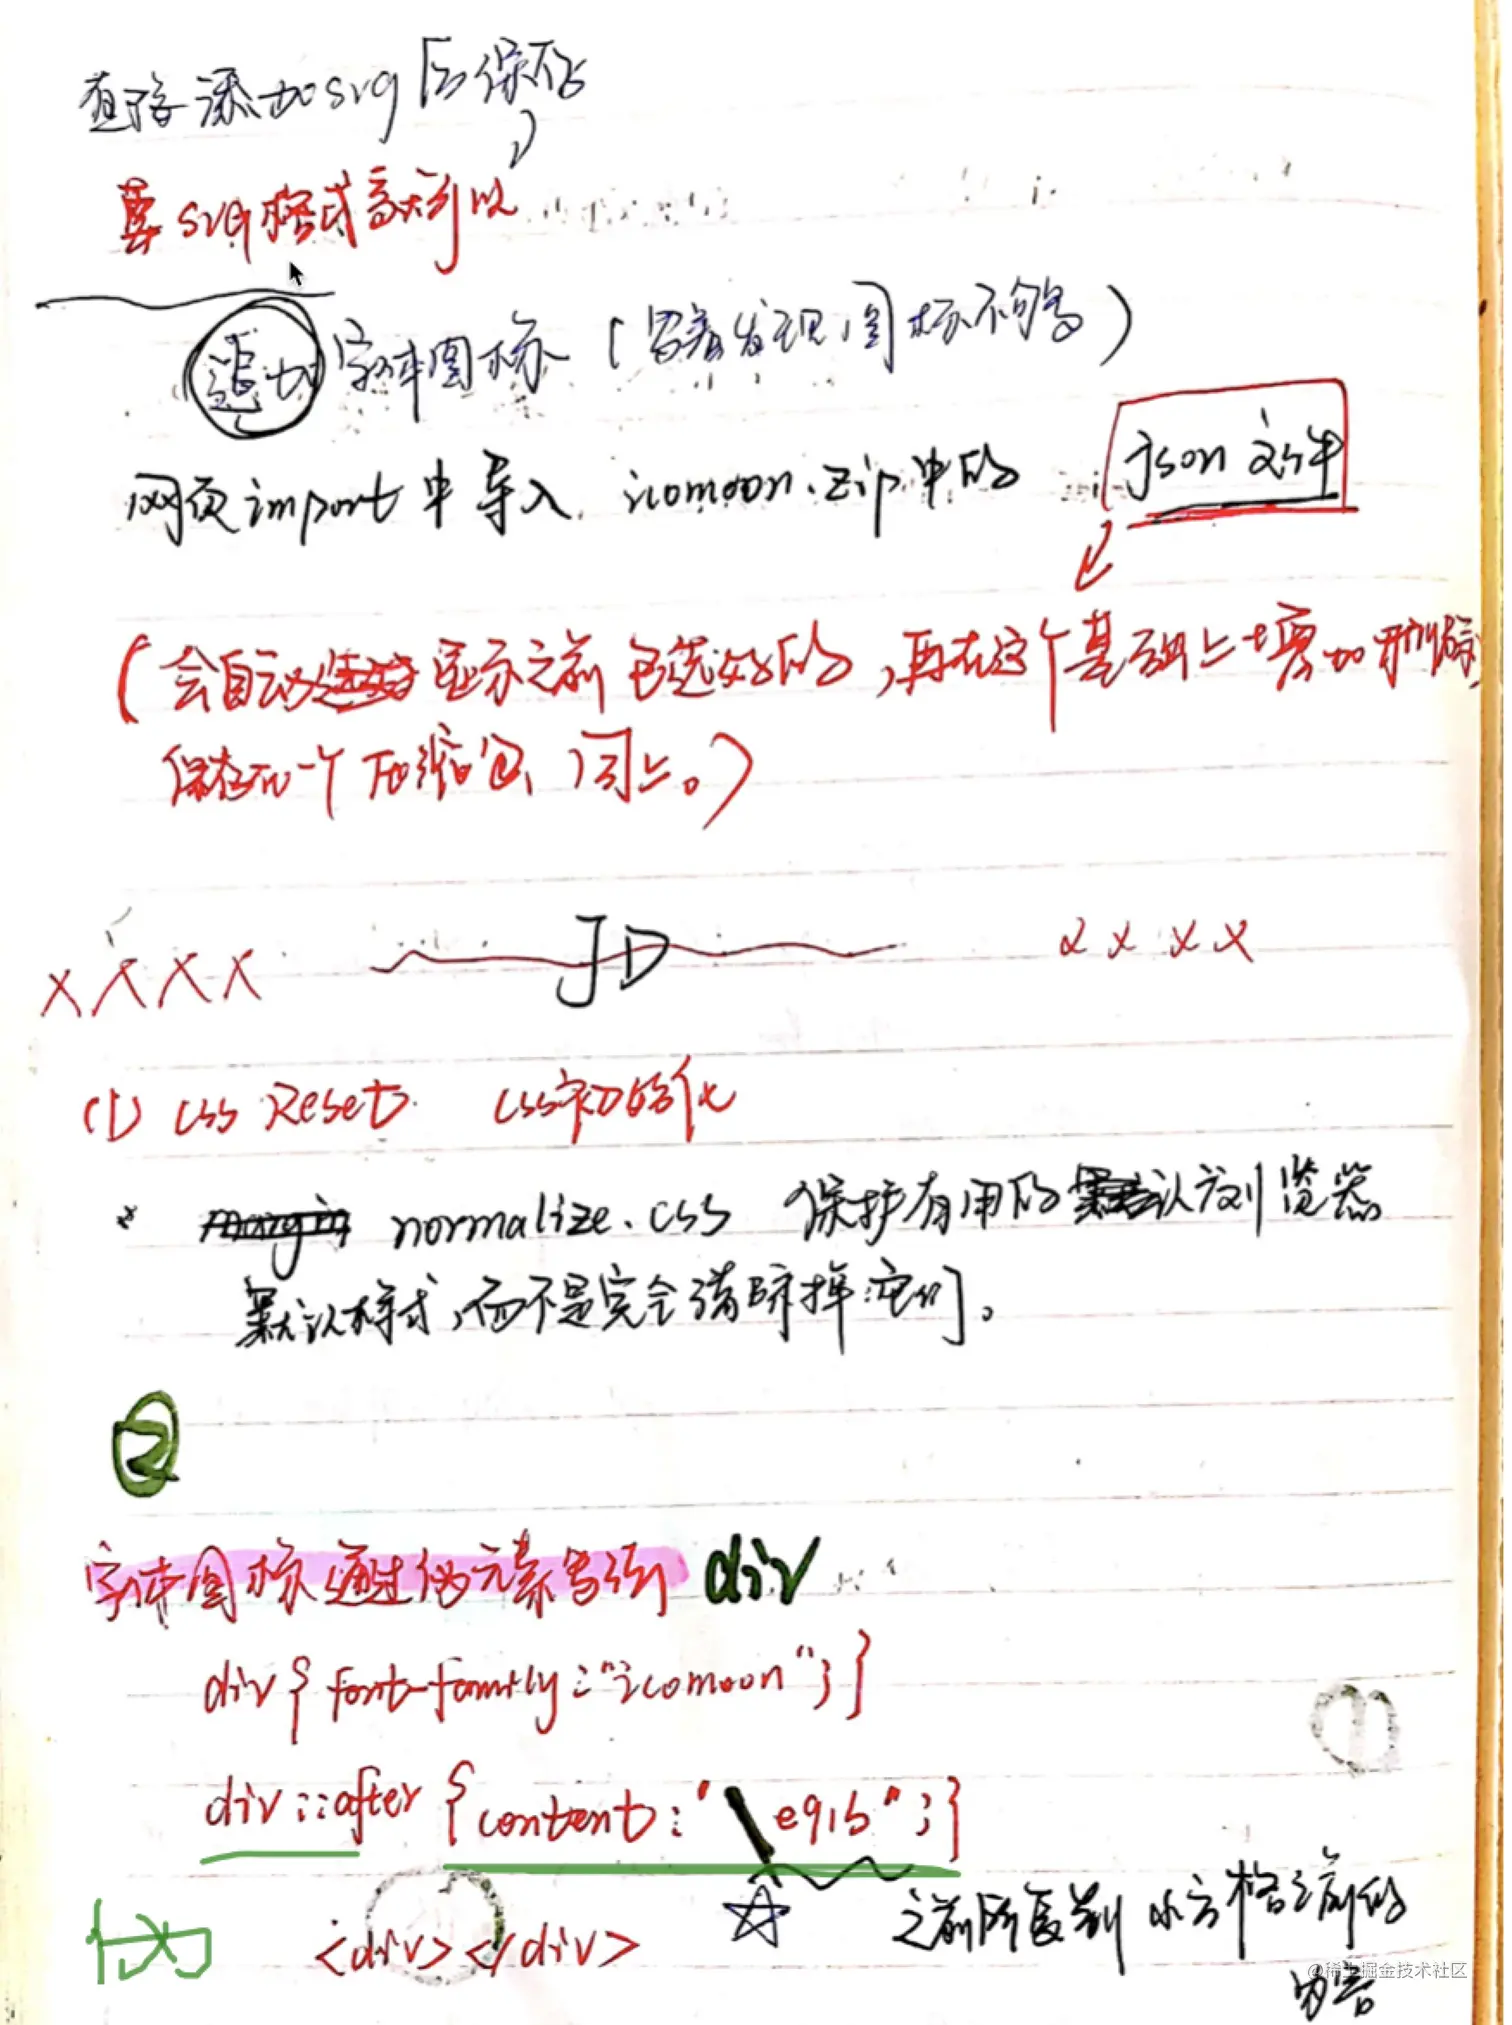 直接添加svg后保存
要svg格式高于可以
追加 字体图标 (若发现图标不够)
网页import中导入 icomoon.zip中的 json 文件
(会自动显示之前已选好的,再在这个基础上增加和删除,
保存在一个压缩包、同上。)
XXXX JD XXXX
(1) css Reset css初始化
* normalize.css 保护有用的浏览器
默认样式,而不是完全清除掉它们。
②
字体图标通过伪元素写到 div
div { font-family:"icomoon"; }
div::after { content:"\e91b"; }
伪 <div></div> ☆ 之前所复制 小方格之前的
内容
@稀土掘金技术社区